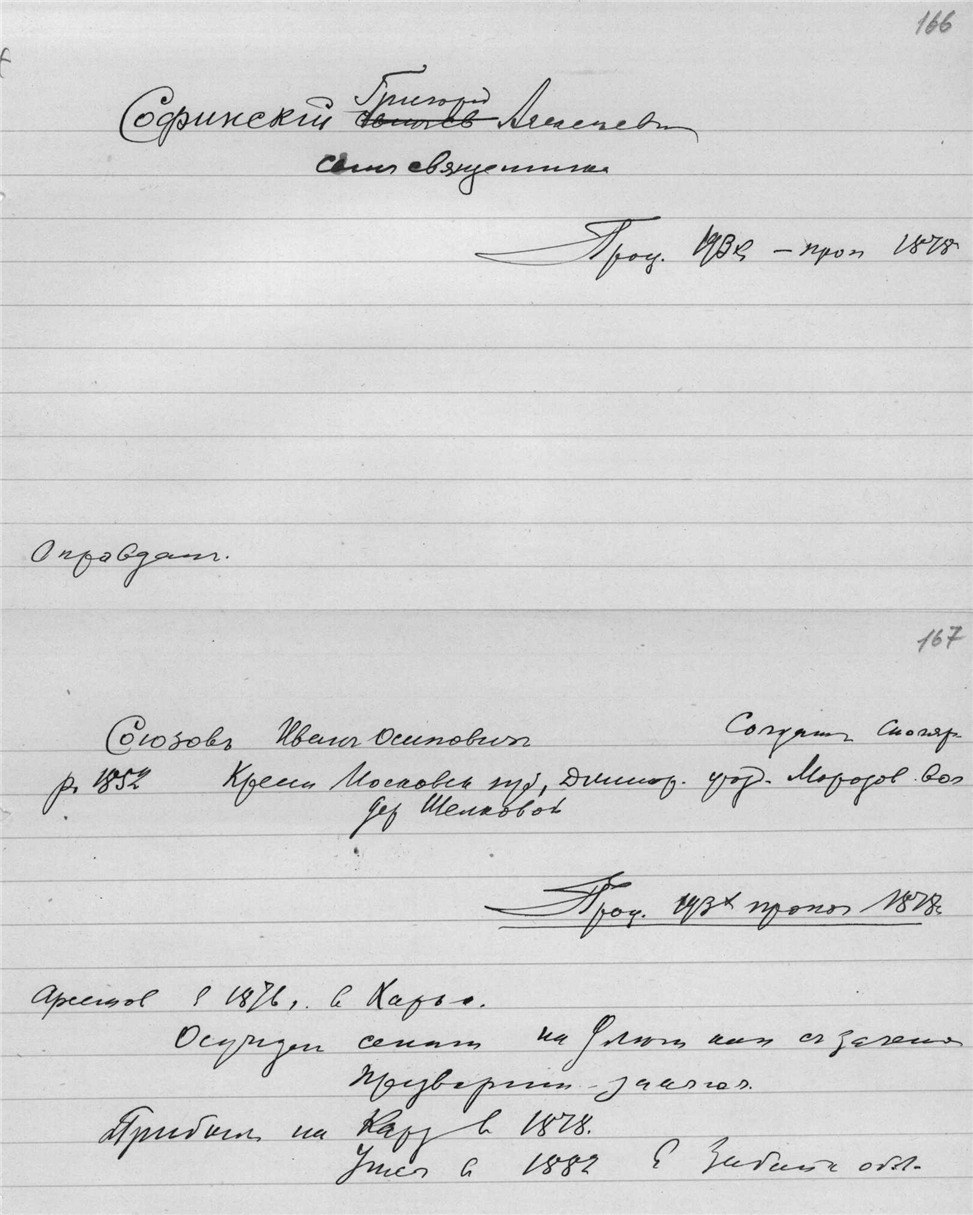 166
Софинскій Григорій Алексеевич
сын священника
Проц. 193х – проп 1878
Оправдан.
167
Союзовъ Иванъ Осиповичъ Солдатъ Столяр.
р. 1852 Крест Московск губ, Дмитр. уезд. Морозов. вол
дер Шелковой
Проц. 193х пропаг 1878.
Арестов в 1876 г. в
Осужден сенат на 9 лет кат с зачетом
предварит – заключ.
Прибыл на Кару в 1878.
Умер в 1882 в Забайк обл.